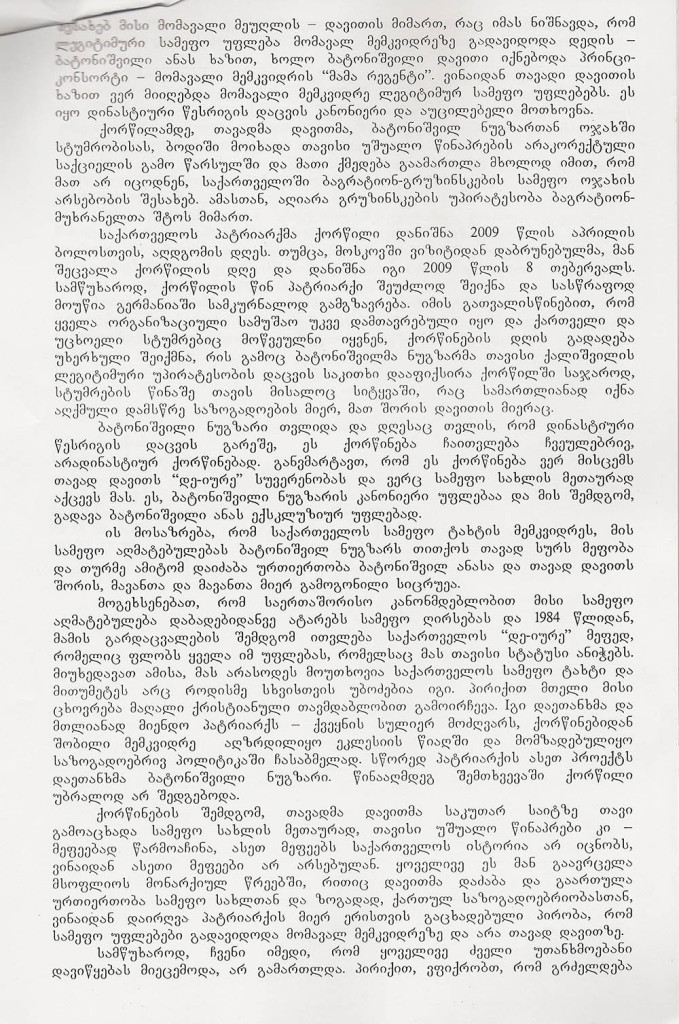 შესახებ მისი მომავალი მეუღლის – დავითის მიმართ, რაც იმას ნიშნავდა, რომ
ლეგიტიმური სამეფო უფლება მომავალ მემკვიდრეზე გადავიდოდა დედის –
ბატონიშვილი ანას ხაზით, ხოლო ბატონიშვილი დავითი იქნებოდა პრინცი-
კონსორტი – მომავალი მემკვიდრის “მამა რეგენტი”. ვინაიდან თავადი დავითის
ხაზით ვერ მიიღებდა მომავალი მემკვიდრე ლეგიტიმურ სამეფო უფლებებს. ეს
იყო დინასტიური წესრიგის დაცვის კანონიერი და აუცილებელი მოთხოვნა.
ქორწილამდე, თავადმა დავითმა, ბატონიშვილ ნუგზართან ოჯახში
სტუმრობისას, ბოდიში მოიხადა თავისი უშუალო წინაპრების არაკორექტული
საქციელის გამო წარსულში და მათი ქმედება გაამართლა მხოლოდ იმით, რომ
მათ არ იცოდნენ, საქართველოში ბაგრატიონ-გრუზინსკების სამეფო ოჯახის
არსებობის შესახებ. ამასთან, აღიარა გრუზინსკების უპირატესობა ბაგრატიონ-
მუხრანელთა შტოს მიმართ.
საქართველოს პატრიარქმა ქორწილი დანიშნა 2009 წლის აპრილის
ბოლოსთვის, აღდგომის დღეს. თუმცა, მოსკოვში ვიზიტიდან დაბრუნებულმა, მან
შეცვალა ქორწილის დღე და დანიშნა იგი 2009 წლის 8 თებერვალს.
სამწუხაროდ, ქორწილის წინ პატრიარქი შეუძლოდ შეიქნა და სასწრაფოდ
მოუწია გერმანიაში სამკურნალოდ გამგზავრება. იმის გათვალისწინებით, რომ
ყველა ორგანიზაციული სამუშაო უკვე დამთავრებული იყო და ქართველი და
უცხოელი სტუმრებიც მოწვეულნი იყვნენ, ქორწინების დღის გადადება
უხერხული შეიქმნა, რის გამოც ბატონიშვილმა ნუგზარმა თავისი ქალიშვილის
ლეგიტიმური უპირატესობის დაცვის საკითხი დააფიქსირა ქორწილში საჯაროდ,
სტუმრების წინაშე თავის მისალოც სიტყვაში, რაც სამართლიანად იქნა
აღქმული დამსწრე საზოგადოების მიერ, მათ შორის დავითის მიერაც.
ბატონიშვილი ნუგზარი თვლიდა და დღესაც თვლის, რომ დინასტიური
წესრიგის დაცვის გარეშე, ეს ქორწინება ჩაითვლება ჩვეულებრივ,
არადინასტიურ ქორწინებად. განვმარტავთ, რომ ეს ქორწინება ვერ მისცემს
თავად დავითს “დე-იურე” სუვერენობას და ვერც სამეფო სახლის მეთაურად
აქცევს მას. ეს, ბატონიშვილი ნუგზარის კანონიერი უფლებაა და მის შემდგომ,
გადავა ბატონიშვილი ანას ექსკლუზიურ უფლებად.
ის მოსაზრება, რომ საქართველოს სამეფო ტახტის მემკვიდრეს, მის
სამეფო აღმატებულებას ბატონიშვილ ნუგზარს თითქოს თავად სურს მეფობა
და თურმე ამიტომ დაიძაბა ურთიერთობა ბატონიშვილ ანასა და თავად დავითს
შორის, მავანთა და მავანთა მიერ გამოგონილი სიცრუეა.
მოგეხსენებათ, რომ საერთაშორისო კანონმდებლობით მისი სამეფო
აღმატებულება დაბადებიდანვე ატარებს სამეფო ღირსებას და 1984 წლიდან,
მამის გარდაცვალების შემდგომ ითვლება საქართველოს “დე-იურე” მეფედ,
რომელიც ფლობს ყველა იმ უფლებას, რომელსაც მას თავისი სტატუსი ანიჭებს.
მიუხედავათ ამისა, მას არასოდეს მოუთხოვია საქართველოს სამეფო ტახტი და
მითუმეტეს არც როდისმე სხვისთვის უბოძებია იგი. პირიქით მთელი მისი
ცხოვრება მაღალი ქრისტიანული თავმდაბლობით გამოირჩევა. იგი დაეთანხმა და
მთლიანად მიენდო პატრიარქს – ქვეყნის სულიერ მოძღვარს, ქორწინებიდან
შობილი მემკვიდრე აღზრდილიყო ეკლესიის წიაღში და მომზადებულიყო
საზოგადოებრივ პოლიტიკაში ჩასაბმელად. სწორედ პატრიარქის ასეთ პროექტს
დაეთანხმა ბატონიშვილი ნუგზარი. წინააღმდეგ შემთხვევაში ქორწილი
უბრალოდ არ შედგებოდა.
ქორწინების შემდგომ, თავადმა დავითმა საკუთარ საიტზე თავი
გამოაცხადა სამეფო სახლის მეთაურად, თავისი უშუალო წინაპრები კი –
მეფეებად წარმოაჩინა, ასეთ მეფეებს საქართველოს ისტორია არ იცნობს,
ვინაიდან ასეთი მეფეები არ არსებულან. ყოველივე ეს მან გაავრცელა
მსოფლიოს მონარქიულ წრეებში, რითიც დავითმა დაძაბა და გაართულა
ურთიერთობა სამეფო სახლთან და ზოგადად, ქართულ საზოგადოებრიობასთან,
ვინაიდან დაირღვა პატრიარქის მიერ ერისთვის გაცხადებული პირობა, რომ
სამეფო უფლებები გადავიდოდა მომავალ მემკვიდრეზე და არა თავად დავითზე.
სამწუხაროდ, ჩვენი იმედი, რომ ყოველივე ძველი უთანხმოებანი
დავიწყებას მიეცემოდა, არ გამართლდა. პირიქით, ვფიქრობთ, რომ გრძელდება